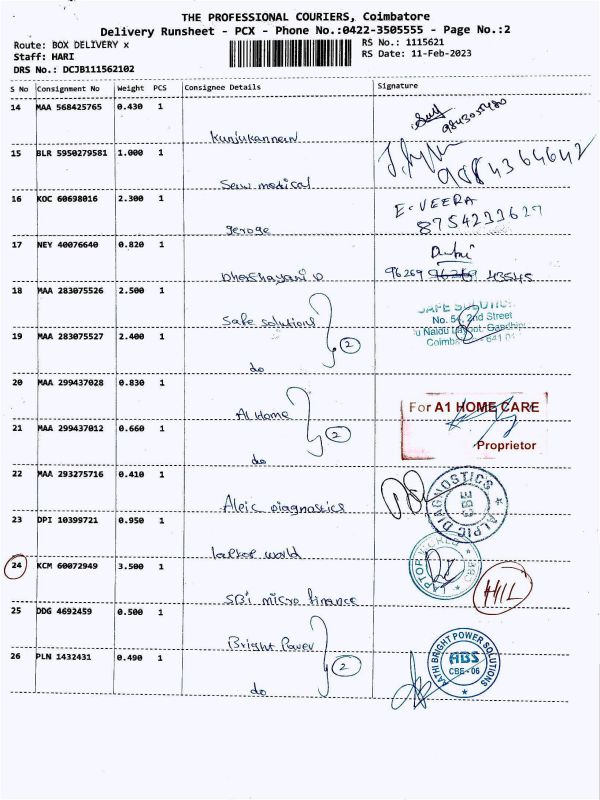 THE PROFESSIONAL COURIERS, Coimbatore
Delivery Runsheet - PCX - Phone No.:0422-3505555 - Page No.:2
Route: BOX DELIVERY x
RS No.: 1115621
Staff: HARI
RS Date: 11-Feb-2023
DRS No.: DCJB111562102
S No Consignment No Weight PCS Consignee Details Signature
14 MAA 568425765 0.430 1
Kunjukannan
15 BLR 5950279581 1.000 1
medical
16 KOC 60698016 2.300 1
E. VEERA
8754233627
geroge
17 NEY 40076640 0.820 1
96269 96269 43545
Dhashayani D
18 MAA 283075526 2.500 1
Safe solutions
SAFE SOLUTIO
No. 54, 2nd Street
u Naidu Layout, Gandhip
Coimb 641 01
19 MAA 283075527 2.400 1
2
do
20 MAA 299437028 0.830 1
A1 Home
For A1 HOME CARE
21 MAA 299437012 0.660 1
2
Proprietor
do
22 MAA 293275716 0.410 1
Alpic diagnostics
ALPIC DIAGNOSTICS
CBE
23 DPI 10399721 0.950 1
laptop world
24 KCM 60072949 3.500 1
SBI micro finance
HIL
25 DDG 4692459 0.500 1
Bright Power
AATHI BRIGHT POWER SOLUTIONS
ABS
CBE-06
26 PLN 1432431 0.490 1
2
do